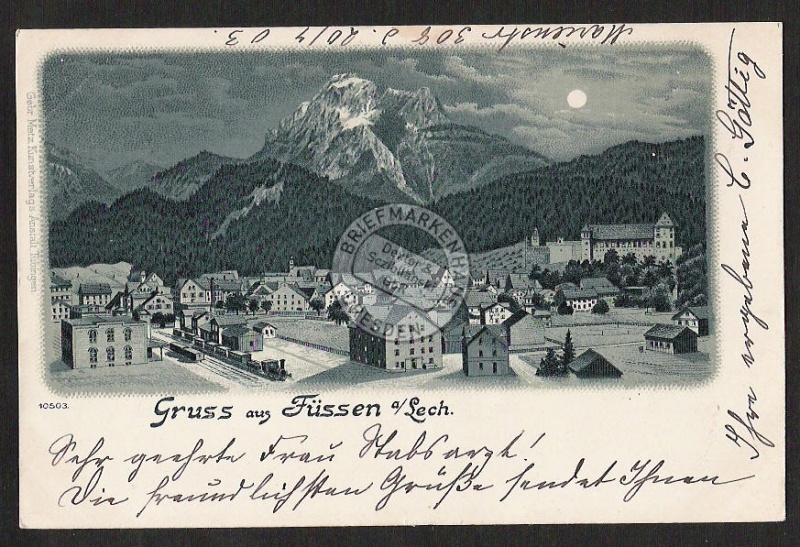 Marienstr 30
Gebr. Metz, Kunstverlags-Anstalt, Tübingen
BRIEFMARKENHAUS
DRESDEN
10503.
Gruss aus Füssen a/Lech.
Sehr geehrte Frau Stabsarzt!
Die freundlichsten Grüße sendet Ihnen
Ihre ergebene C. Göttig